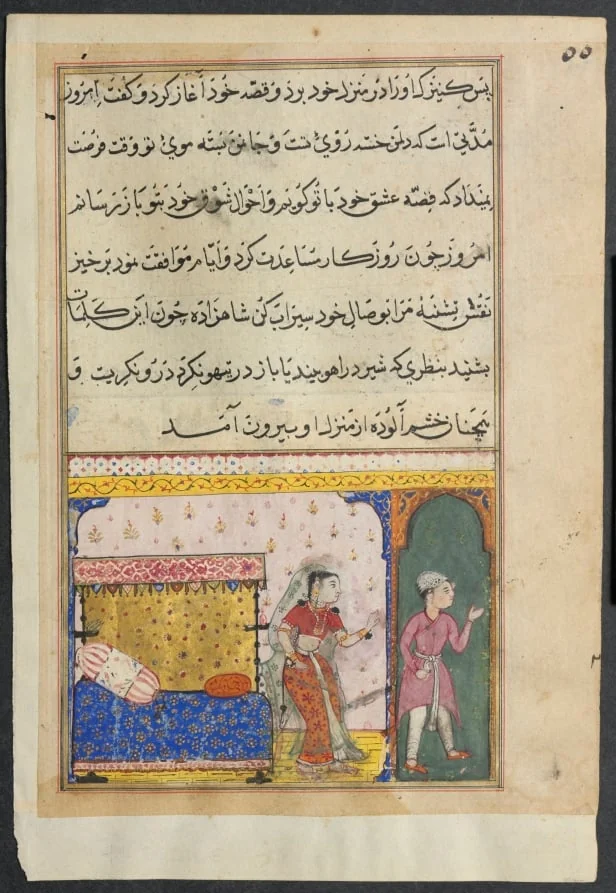 ۵۵
پس کنیزک او را در منزل خود برد و قصه خود آغاز کرد و گفت امروز
مدتی است که دلمن خسته روی تست و جانمن بسته موی تو وقت فرصت
نمیداد که قصه عشق خود با تو گویم و احوال شوق خود بتو باز رسانم
امروز چون روزکار مساعدت کرد و ایام موافقت نمود برخیز
تشنه مرا بوصال خود سیراب کن شاهزاده چون این کلمات
بشنید بنظری که شیر در اهو بیند یا باز در تیهو نکرد درو نکریت و
همچنان خشم آلوده از منزل او بیرون آمد